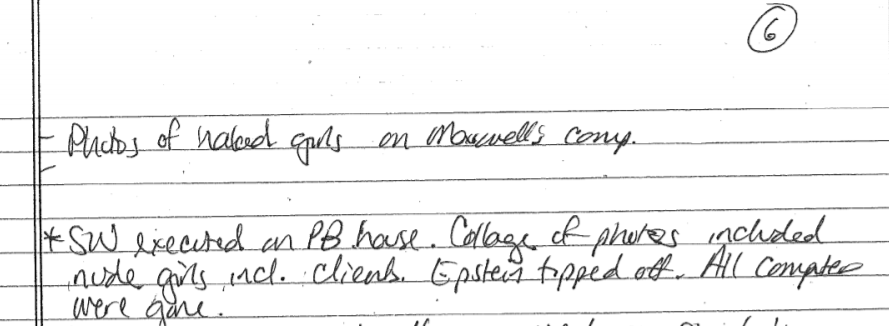 6
- Photos of naked girls on Maxwell's comp.
-
* SW executed on PB house. Collage of photos included
nude girls, incl. clients. Epstein tipped off. All computers
were gone.